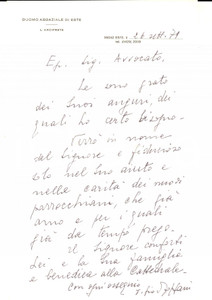 DUOMO ABBAZIALE DI ESTE
L'ARCIPRETE
Eg. Sig. Avvocato.
Le sono grato
dei Suoi auguri, dei
quali ho certo bisogno.
Verrò in nome
del Signore e fiducioso
solo nel Suo aiuto e
nella carità dei nuovi
parrocchiani, che già
amo e per i quali
già da tempo prego.
Il Signore conforti
Lei e la Sua famiglia
e benedica alla
Con ogni ossequio